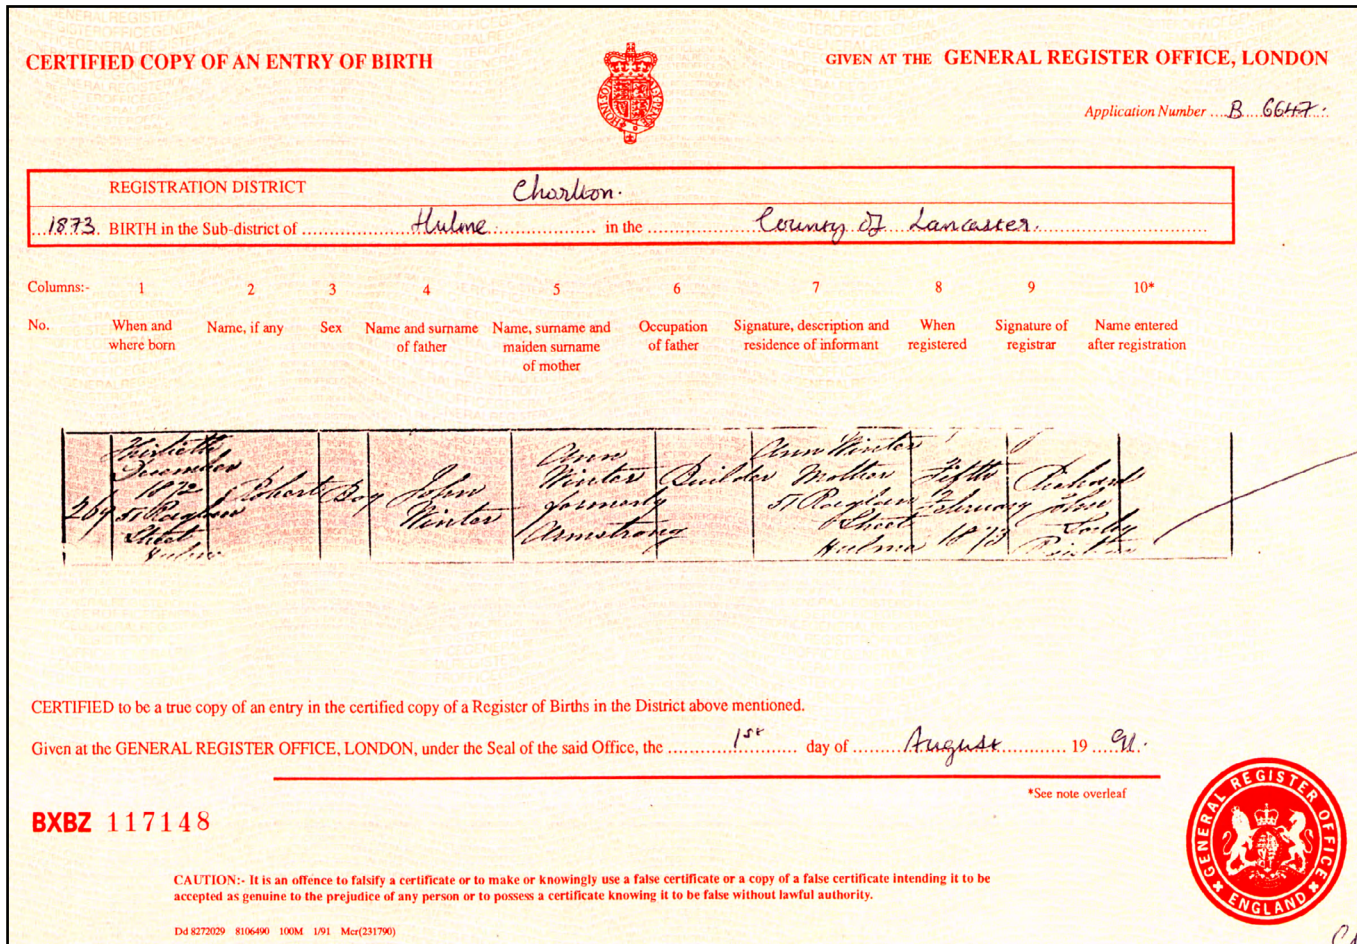 CERTIFIED COPY OF AN ENTRY OF BIRTH
GIVEN AT THE GENERAL REGISTER OFFICE, LONDON
Application Number B 6647.
REGISTRATION DISTRICT Chorlton.
1873. BIRTH in the Sub-district of Hulme. in the County of Lancaster.
Columns:- 1 2 3 4 5 6 7 8 9 10*
No. When and where born Name, if any Sex Name and surname of father Name, surname and maiden surname of mother Occupation of father Signature, description and residence of informant When registered Signature of registrar Name entered after registration
269
Thirtieth
December
1872
51 Raglan
Street
Hulme
Robert
Boy
John
Winter
Ann
Winter
formerly
Armstrong
Builder
Ann Winter
Mother
51 Raglan
Street
Hulme
Fifth
February
1873
Richard
John
CERTIFIED to be a true copy of an entry in the certified copy of a Register of Births in the District above mentioned.
Given at the GENERAL REGISTER OFFICE, LONDON, under the Seal of the said Office, the 1st day of August 19 91.
*See note overleaf
BXBZ 117148
GENERAL REGISTER OFFICE
ENGLAND
CAUTION:- It is an offence to falsify a certificate or to make or knowingly use a false certificate or a copy of a false certificate intending it to be
accepted as genuine to the prejudice of any person or to possess a certificate knowing it to be false without lawful authority.
Dd 8272029 8106490 100M 1/91 Mcr(231790)